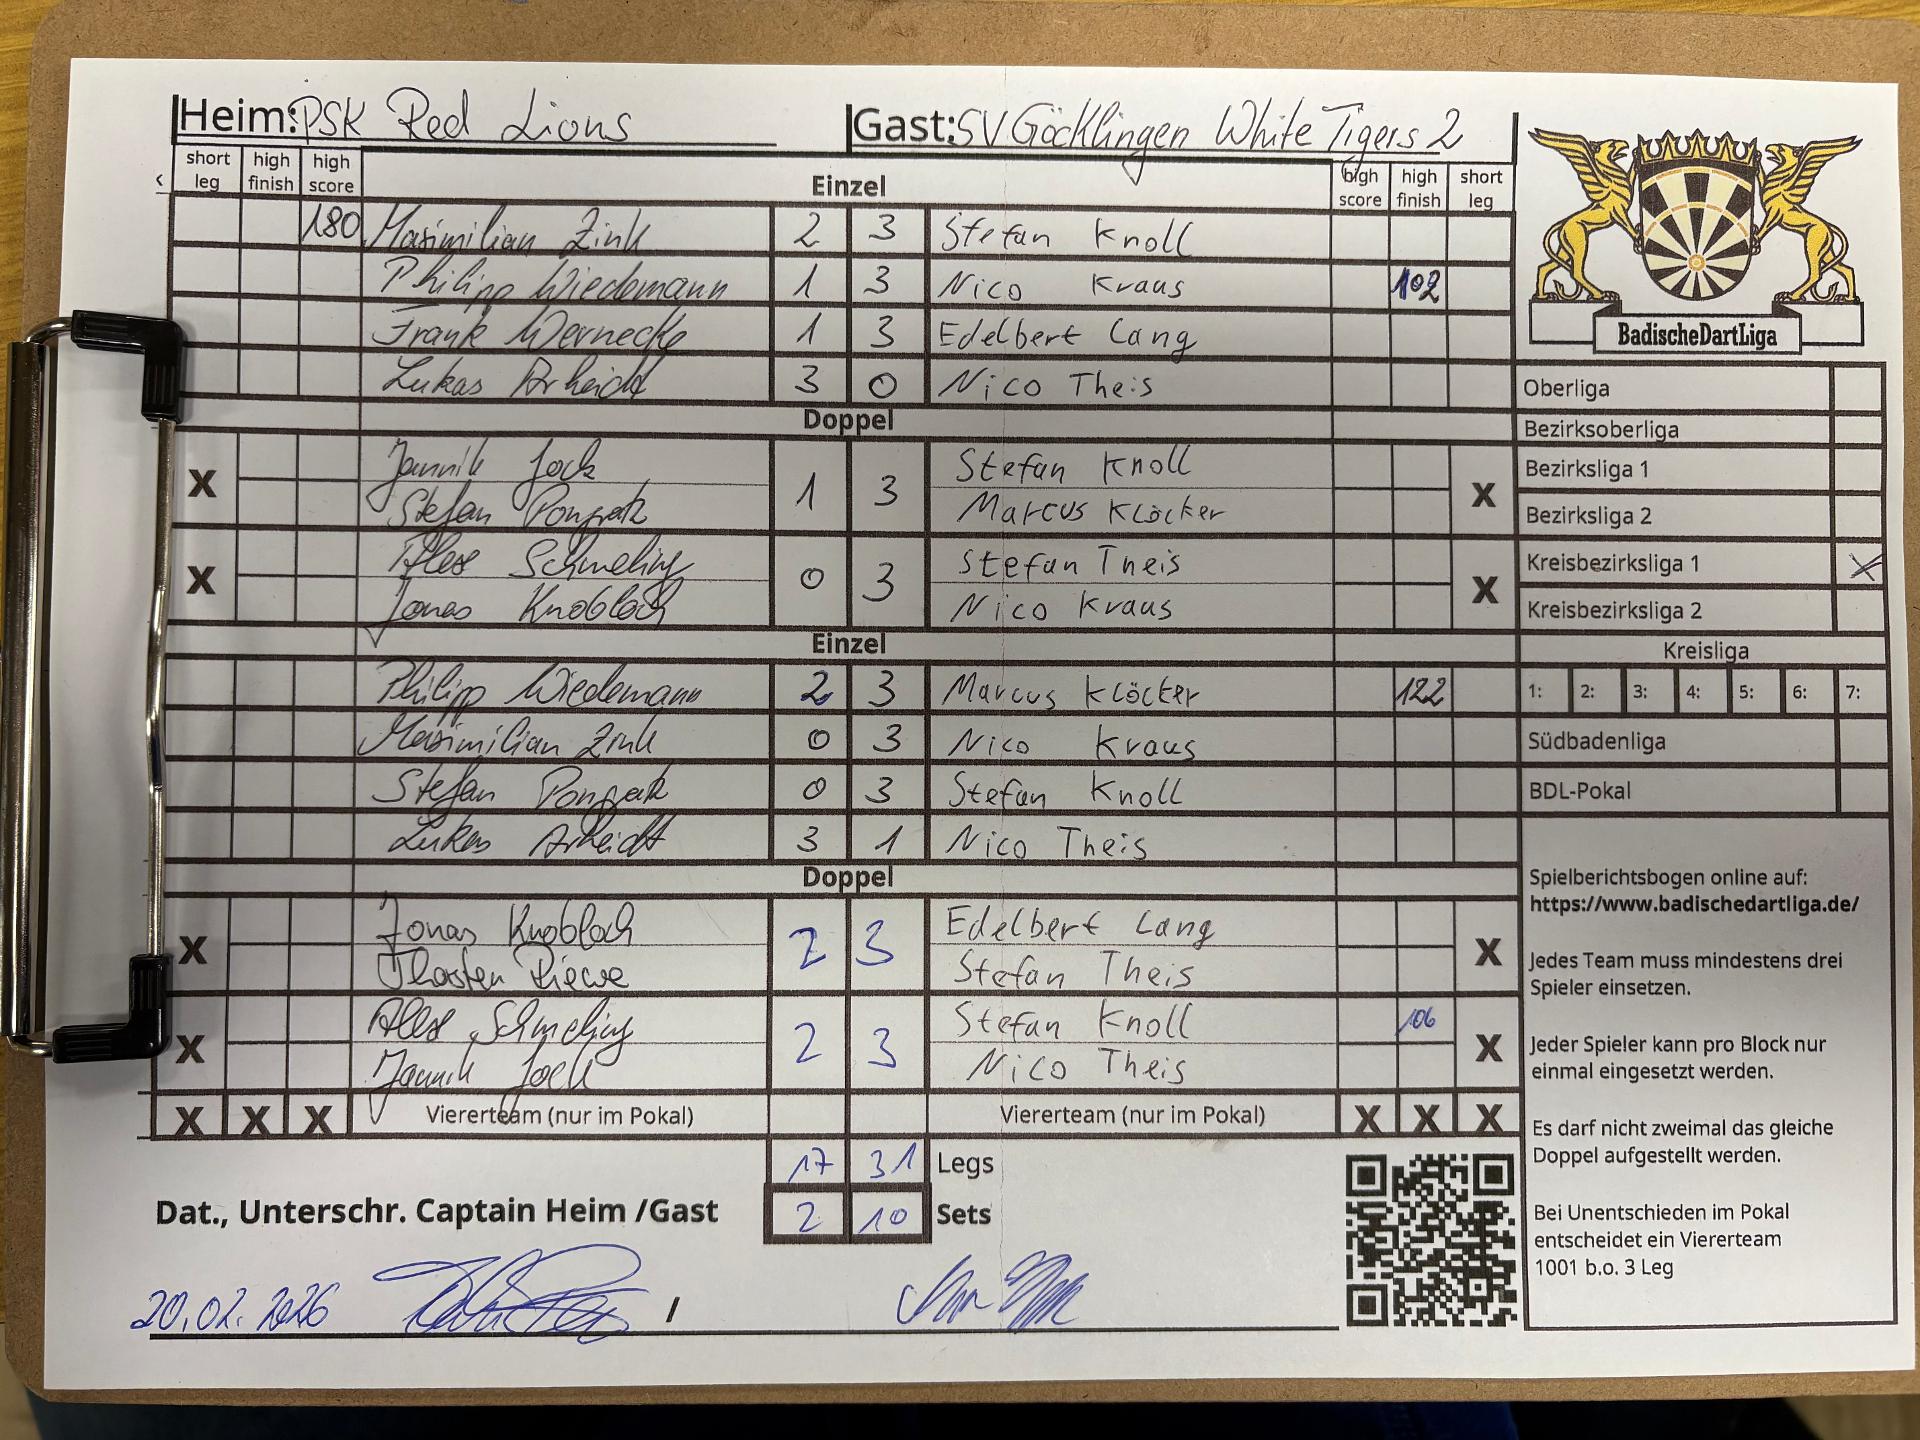 Heim: PSK Red Lions Gast: SV Göcklingen White Tigers 2
short leg high finish high score Einzel high score high finish short leg
180 Maximilian Zink 2 3 Stefan Knoll
Philipp Wiedemann 1 3 Nico Kraus 102
Frank Wernecke 1 3 Edelbert Lang
Lukas Arheidt 3 0 Nico Theis
Doppel
X Jannik Jock 1 3 Stefan Knoll X
Stefan Pongratz Marcus Klöcker
X Alex Schmeling 0 3 Stefan Theis X
Jonas Knobloch Nico Kraus
Einzel
Philipp Wiedemann 2 3 Marcus Klöcker 122
Maximilian Zink 0 3 Nico Kraus
Stefan Pongratz 0 3 Stefan Knoll
Lukas Arheidt 3 1 Nico Theis
Doppel
X Jonas Knobloch 2 3 Edelbert Lang X
Thorsten Stefan Theis
X Alex Schmeling 2 3 Stefan Knoll 106 X
Jannik Jock Nico Theis
X X X Viererteam (nur im Pokal) Viererteam (nur im Pokal) X X X
17 31 Legs
Dat., Unterschr. Captain Heim /Gast 2 10 Sets
20.02.2026 /
BadischeDartLiga
Oberliga
Bezirksoberliga
Bezirksliga 1
Bezirksliga 2
Kreisbezirksliga 1 X
Kreisbezirksliga 2
Kreisliga
1: 2: 3: 4: 5: 6: 7:
Südbadenliga
BDL-Pokal
Spielberichtsbogen online auf:
https://www.badischedartliga.de/
Jedes Team muss mindestens drei
Spieler einsetzen.
Jeder Spieler kann pro Block nur
einmal eingesetzt werden.
Es darf nicht zweimal das gleiche
Doppel aufgestellt werden.
Bei Unentschieden im Pokal
entscheidet ein Viererteam
1001 b.o. 3 Leg